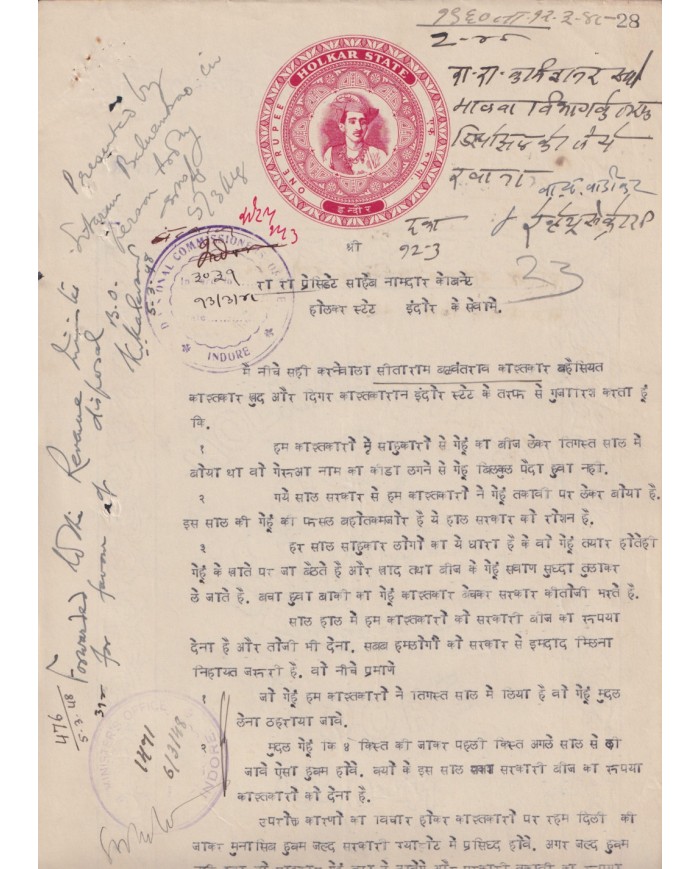 १९६० ता. १२-३-४८ - 28
HOLKAR STATE
ONE RUPEE
एक रुपया
इन्दौर
Presented by
Sitaram Balwantrao in
Person today
5/3/48
रवाना
श्री
१२-३
23
DIVISIONAL COMMISSIONER'S OFFICE
३०३१
१३/३/४८
INDORE
रा रा प्रेसिडेंट साहेब नामदार कॅाबनेट
होलकर स्टेट इंदौर के सेवामे.
मै नीचे सही करनेवाला सीताराम बळवंतराव कास्तकार बहैसियत
कास्तकार खुद और दिगर कास्तकारान इंदौर स्टेट के तरफ से गुजारिश करता हूं
कि.
१ हम कास्तकारों ने साहुकारों से गेहूं का बीज लेकर तिगस्त साल मे
बोया था वो गेरूआ नाम का कीडा लगने से गेहूं बिलकुल पैदा हुवा नही.
२ गये साल सरकार से हम कास्तकारों ने गेहूं तकावी पर लेकर बोया है.
इस साल की गेहूं की फसल बहोतकमजोर है ये हाल सरकार को रोशन है.
३ हर साल साहुकार लोगों का ये धारा है के वो गेहूं तयार होतेही
गेहूं के खाते पर जा बैठते है और खाद तथा बीज के गेहूं सवाण सुध्दा तुलाकर
ले जाते है. बचा हुवा बाकी का गेहूं कास्तकार बेचकर सरकार कीतोजी भरते है.
साल हाल मे हम कास्तकारों को सरकारी बीज का रूपया
देना है और तोजी भी देना. सबब हमलोगों को सरकार से इमदाद मिलना
निहायत जरूरी है. वो नीचे प्रमाणे
१ जो गेहूं हम कास्तकारों ने तिगस्त साल में लिया है वो गेहूं मुदल
लेना ठहराया जावे.
२ मुदल गेहूं कि ४ किस्त की जाकर पहली किस्त अगले साल से ली
जावे ऐसा हुक्म होवे. क्यों के इस साल सरकारी बीज का रूपया
कास्तकारों को देना है.
उपरोक्त कारणों का विचार होकर कास्तकारों पर रहम दिली की
जाकर मुनासिब हुक्म जल्द सरकारी ग्याझेट मे प्रसिध्द होवे. अगर जल्द हुक्म
Forwarded to the Revenue Minister
for favour of disposal
B.O.
5-3-48
476
5.3.48
MINISTER'S OFFICE
1471
6/3/48
INDORE